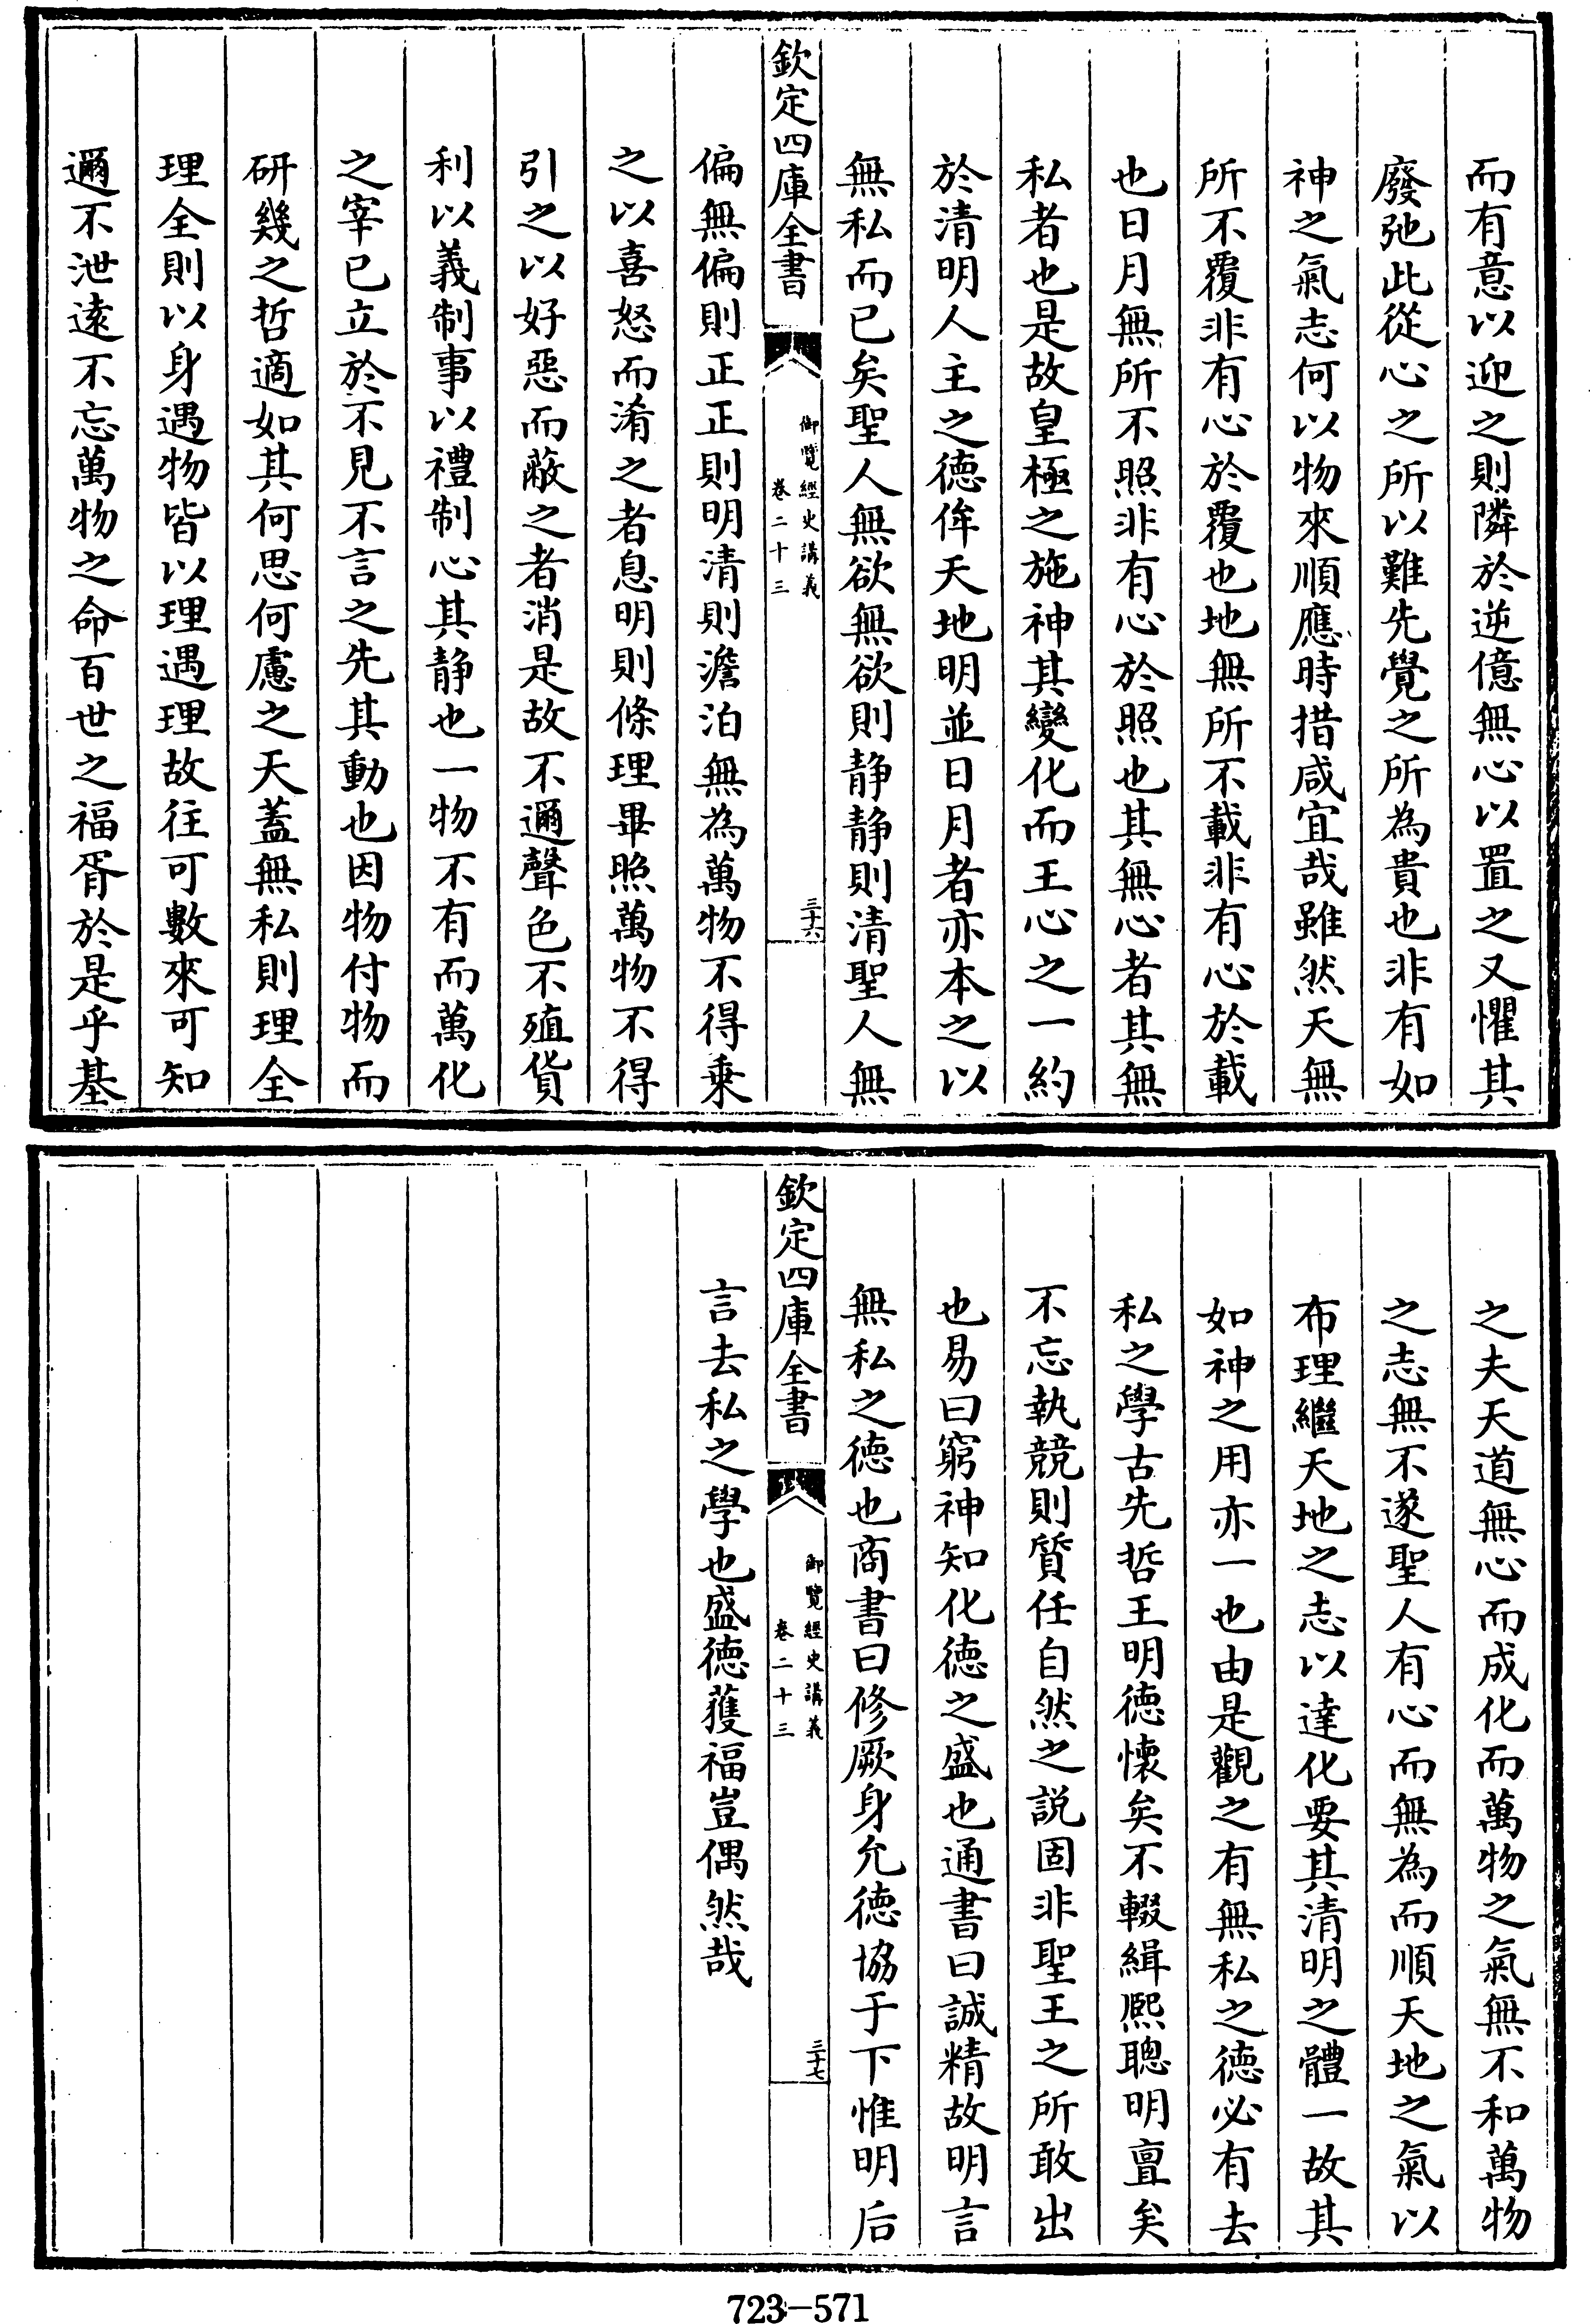 而有意以迎之則隣於逆億無心以置之又懼其
廢弛此從心之所以難先覺之所為貴也非有如
神之氣志何以物來順應時措咸宜哉雖然天無
所不覆非有心於覆也地無所不載非有心於載
也日月無所不照非有心於照也其無心者其無
私者也是故皇極之施神其變化而王心之一約
於清明人主之德侔天地明並日月者亦本之以
無私而已矣聖人無欲無欲則静静則清聖人無
欽定四庫全書
御覽經史講義
卷二十三
三十六
偏無偏則正正則明清則澹泊無為萬物不得乗
之以喜怒而淆之者息明則條理畢照萬物不得
引之以好惡而蔽之者消是故不邇聲色不殖貨
利以義制事以禮制心其静也一物不有而萬化
之宰已立於不見不言之先其動也因物付物而
研幾之哲適如其何思何慮之天蓋無私則理全
理全則以身遇物皆以理遇理故往可數來可知
邇不泄遠不忘萬物之命百世之福胥於是乎基
之夫天道無心而成化而萬物之氣無不和萬物
之志無不遂聖人有心而無為而順天地之氣以
布理繼天地之志以達化要其清明之體一故其
如神之用亦一也由是觀之有無私之德必有去
私之學古先哲王明德懷矣不輟緝熙聰明亶矣
不忘執競則質任自然之説固非聖王之所敢出
也易曰窮神知化德之盛也通書曰誠精故明言
無私之德也商書曰修厥身允德協于下惟明后
欽定四庫全書
御覽經史講義
卷二十三
三十七
言去私之學也盛德獲福豈偶然哉
723-571